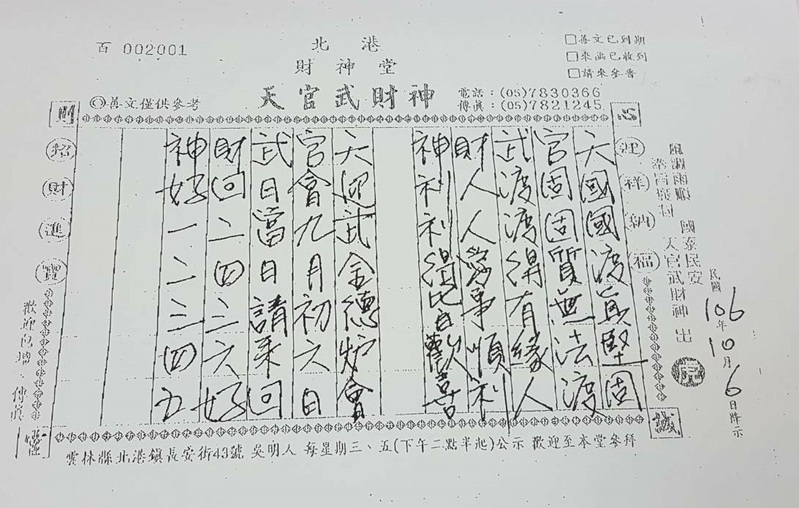 百 002001
北港
財神堂
天官武財神
◎善文僅供參考
電話:(05)7830366
傳真:(05)7821245
□善文已到期
□來函已收到
□請來參香
心
誠
迎祥納福
國泰民安
天官武財神 出
民國106年10月6日降示
天國國渡真堅固
官固固質無法渡
武渡渡得有緣人
財人人當事順利
神利利得皆歡喜
天迎武金德炉會
官會九月初六日
武日當日請來回
財回二四三六好
神好一二三四五
財
招財進寶
靈
雲林縣北港鎮長安街43號 吳明人 每星期三、五(下午二點半起)公示 歡迎至本堂參拜